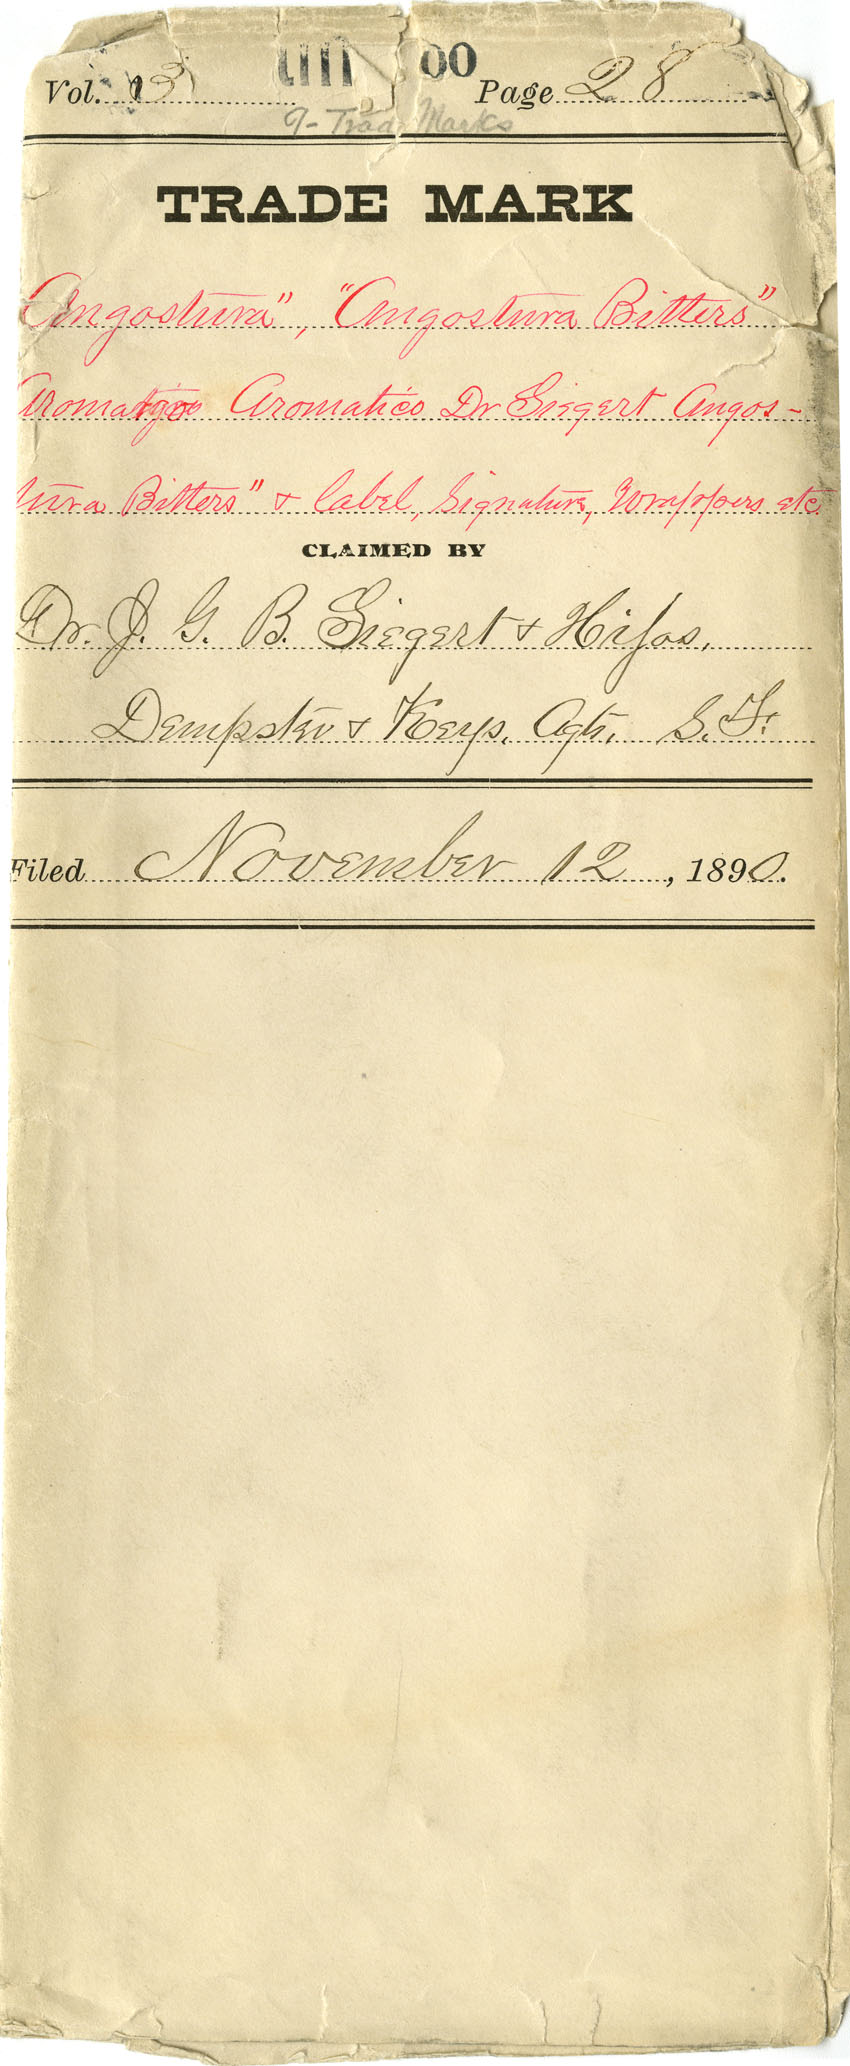 00
Vol. 13 Page 28
9- Trade Marks
TRADE MARK
Angostura", "Angostura Bitters"
Aromatico Dr Siegert Angos-
tura Bitters" & label, Signature, Wrappers etc.
CLAIMED BY
Dr. J. G. B. Siegert & Hijos,
Dempster & Keys, Agts. S. F.
Filed November 12, 1890.